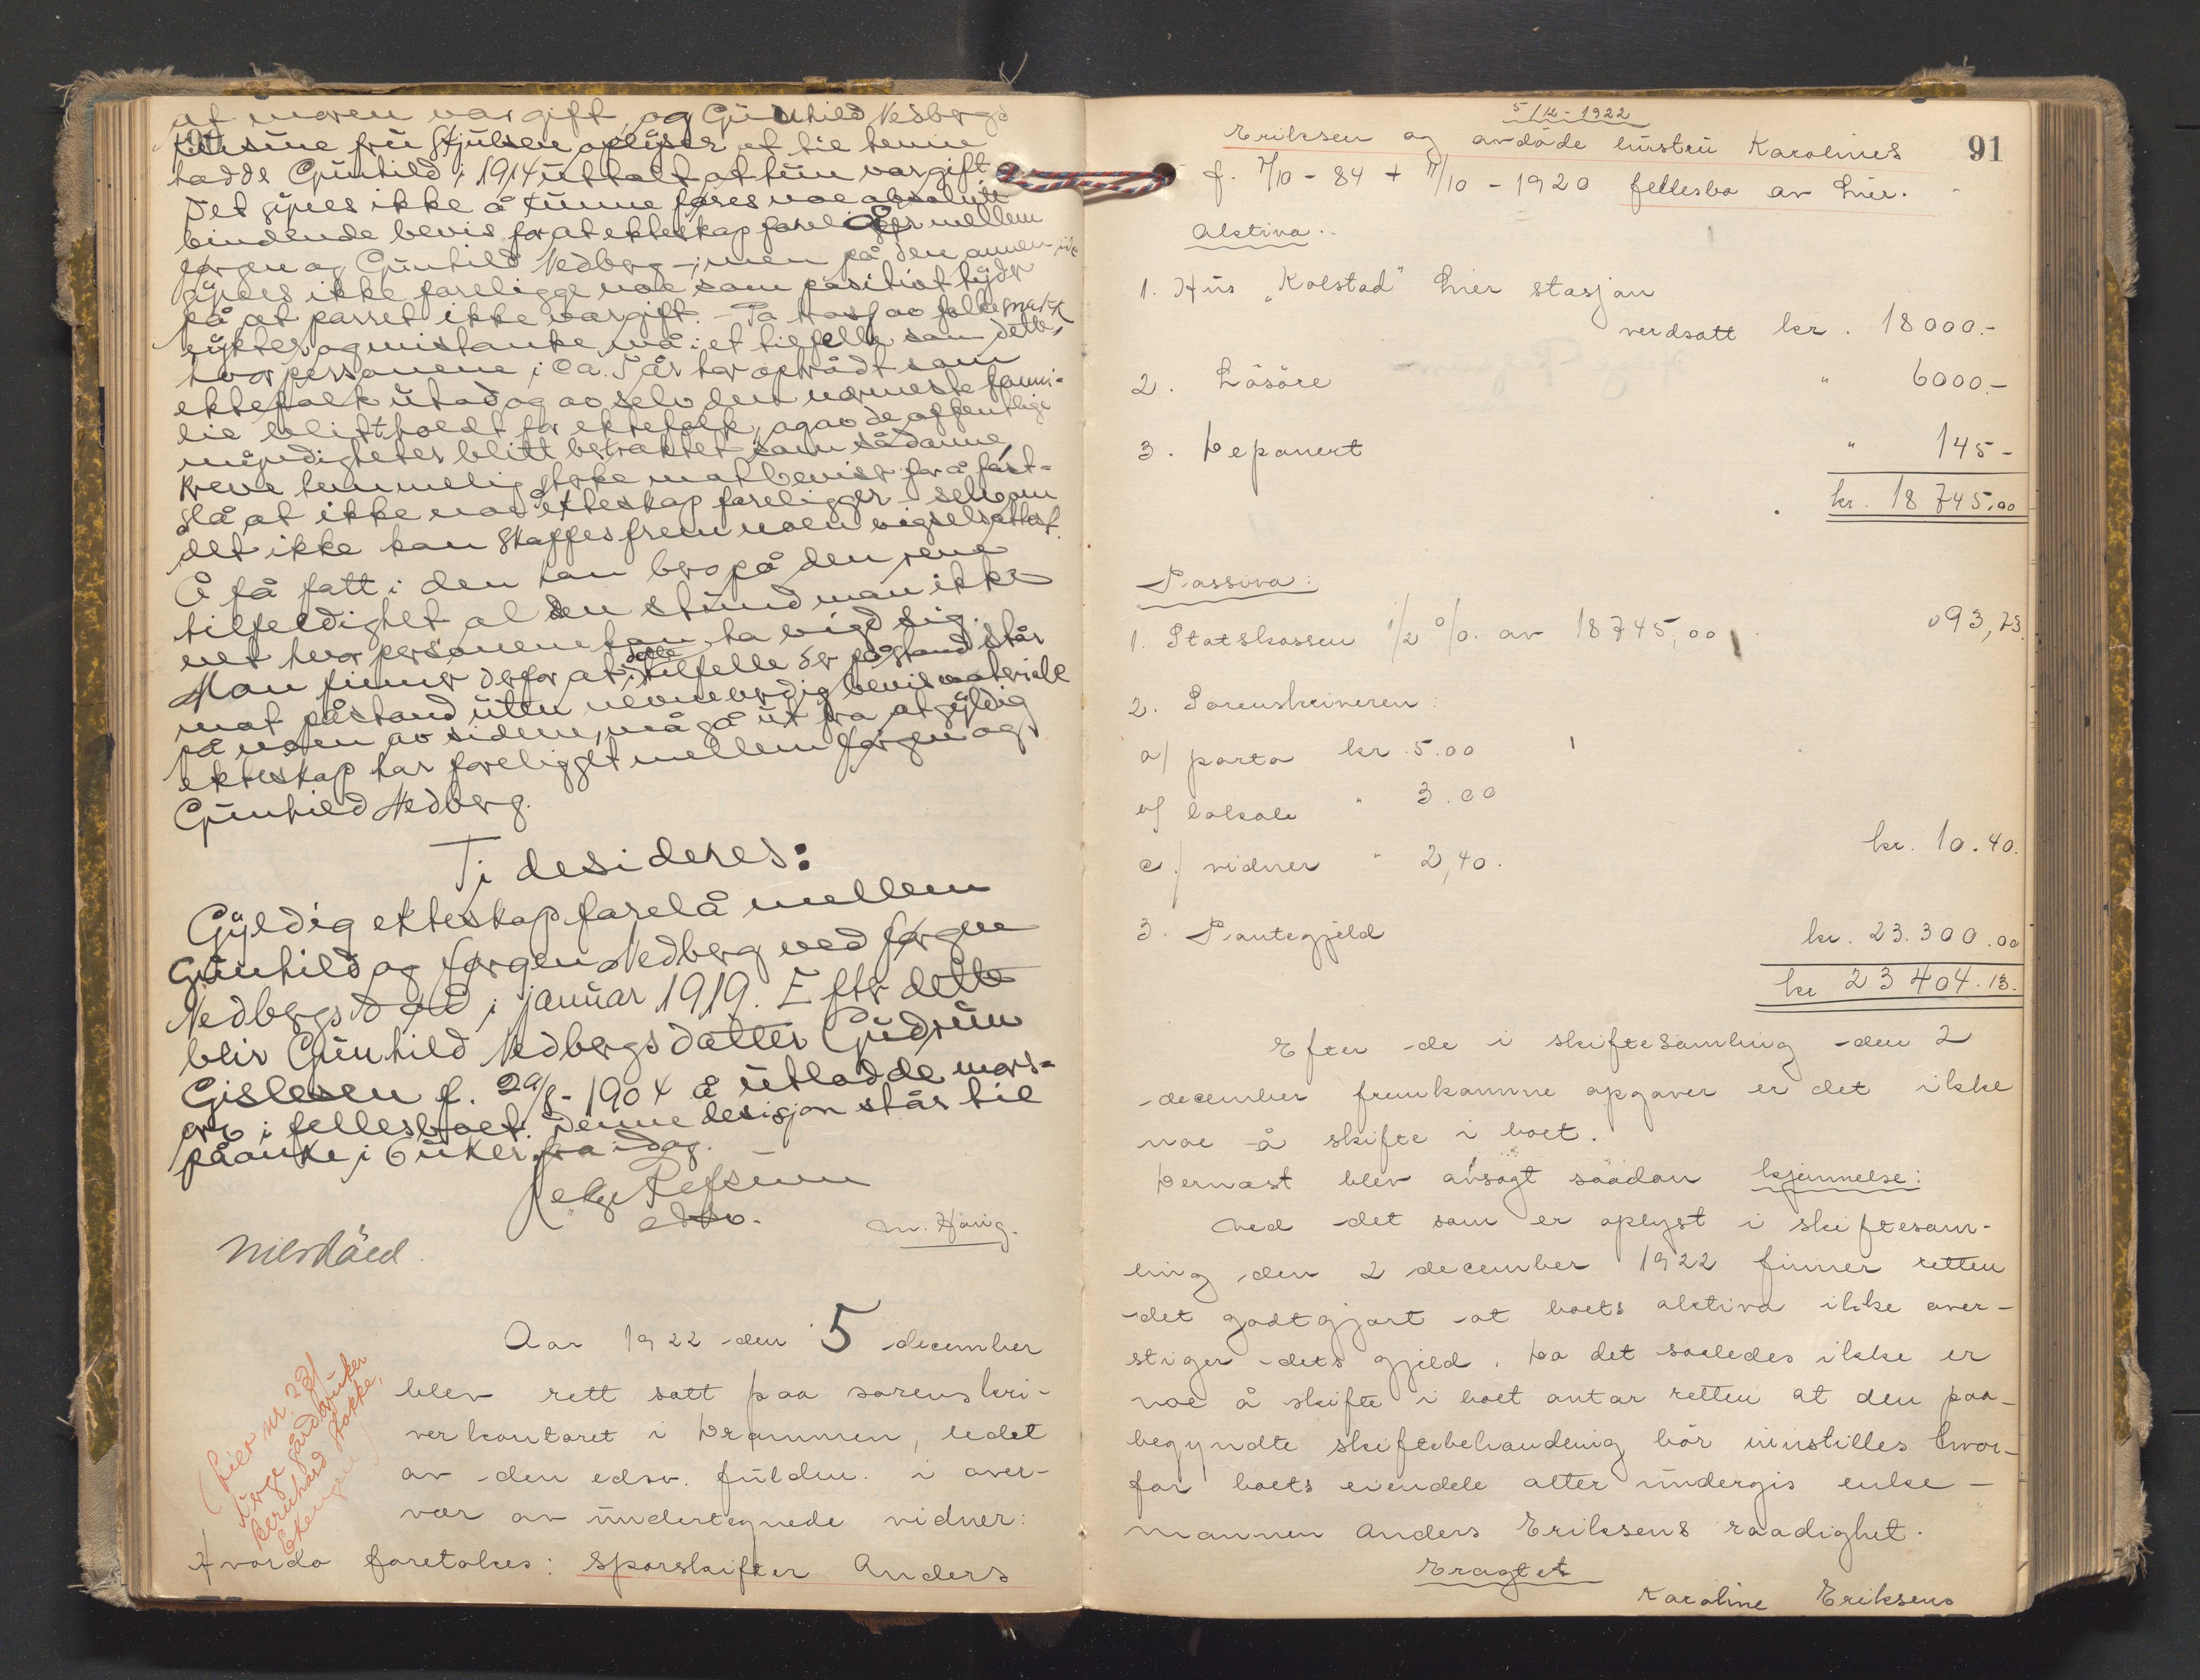 at moren var gift, og Günhild Nedbergs
kusine frü Hjülsen oplyser at til henne
hadde Günhild i 1914 üttalt at hün var gift.
Det synes ikke å künne føres noe absolütt
bindende bevis for at ekteskap foreligger mellem
Jørgen og Günhild Nedberg -; men på den annen side
synes ikke foreligge noe som positivt tyder
på at parret ikke var gift. - På tross av folkesnakk
rykter og mistanke må i et tilfelle som dette,
hvor personene i ca. 5 år har optrådt som
ektefolk ütad og av selv den nærmeste fami-
lie blitt holdt for ektefolk, og av de offentlige
myndigheter blitt betraktet som sådanne,
kreve temmelig sterke motbeviser for å fast-
slå at ikke noe ekteskap foreligger - selv om
det ikke kan skaffes frem noen vigselsattest.
Å få fatt i den kan bero på den rene
tilfeldighet al den stünd man ikke
vet hvor personene kan ha vigd sig.
Man finner derfor at i dette tilfelle der påstand står
mot påstand üten nevneverdig bevismateriale
på noen av sidene, må gå üt fra at gyldig
ekteskap har foreligget mellem Jørgen og
Günhild Nedberg.
Ti desideres:
Gyldig ekteskap forelå mellem
Günhild og Jørgen Nedberg ved Jørgen
Nedbergs død i januar 1919. Efter dette
blir Günhild Nedbergs datter Güdrün
Gislesen f. 29/8-1904 å ütlodde mors-
arv i fellesboet. Denne desisjon står til
påanke i 6 üker fra idag.
Helge Refsum
edsv.
M. Hönig.
Nils Kåld.
Aar 1922 den 5 december
blev rett satt paa sorenskri-
verkontoret i Drammen, ledet
av den edsv. füldm. i over-
vær av ündertegnede vidner:
(Lier nr. 23/
Uvge gårdbrüker
Bernhard Stokke,
Ekengen)
Hvorda foretokes: Sporskifter Anders
91
5/12-1922
Eriksen og avdøde hüstrü Karolines
f. 7/10-84 + 11/10-1920 fellesbo av Lier.
Aktiva..
1. Hüs "Kolstad" Lier stasjon
verdsatt kr. 18000.-
2. Løsøre " 6000.-
3. Deponert " 145-
kr. 18745.00
Passiva:
1. Statskassen 1/2 % av 18745,00 093,73.
2. Sorenskriveren:
a/ porto kr. 5.00
b/ lokale " 3.00
c/ vidner " 2,40. kr. 10.40.
3. Pantegjeld kr. 23.300.00
kr 23404.13.
Efter de i skiftesamling den 2
december fremkomne opgaver er det ikke
noe å skifte i boet.
Dernæst blev avsagt saadan kjennelse:
Ved det som er oplyst i skiftesam-
ling den 2 december 1922 finner retten
det godtgjort at boets aktiva ikke over-
stiger dets gjeld. Da det saaledes ikke er
noe å skifte i boet antar retten at den paa-
begyndte skiftebehandling bør innstilles hvor-
for boets eiendele atter ündergis enke-
mannen Anders Eriksens raadighet.
Eragtet
Karoline Eriksens